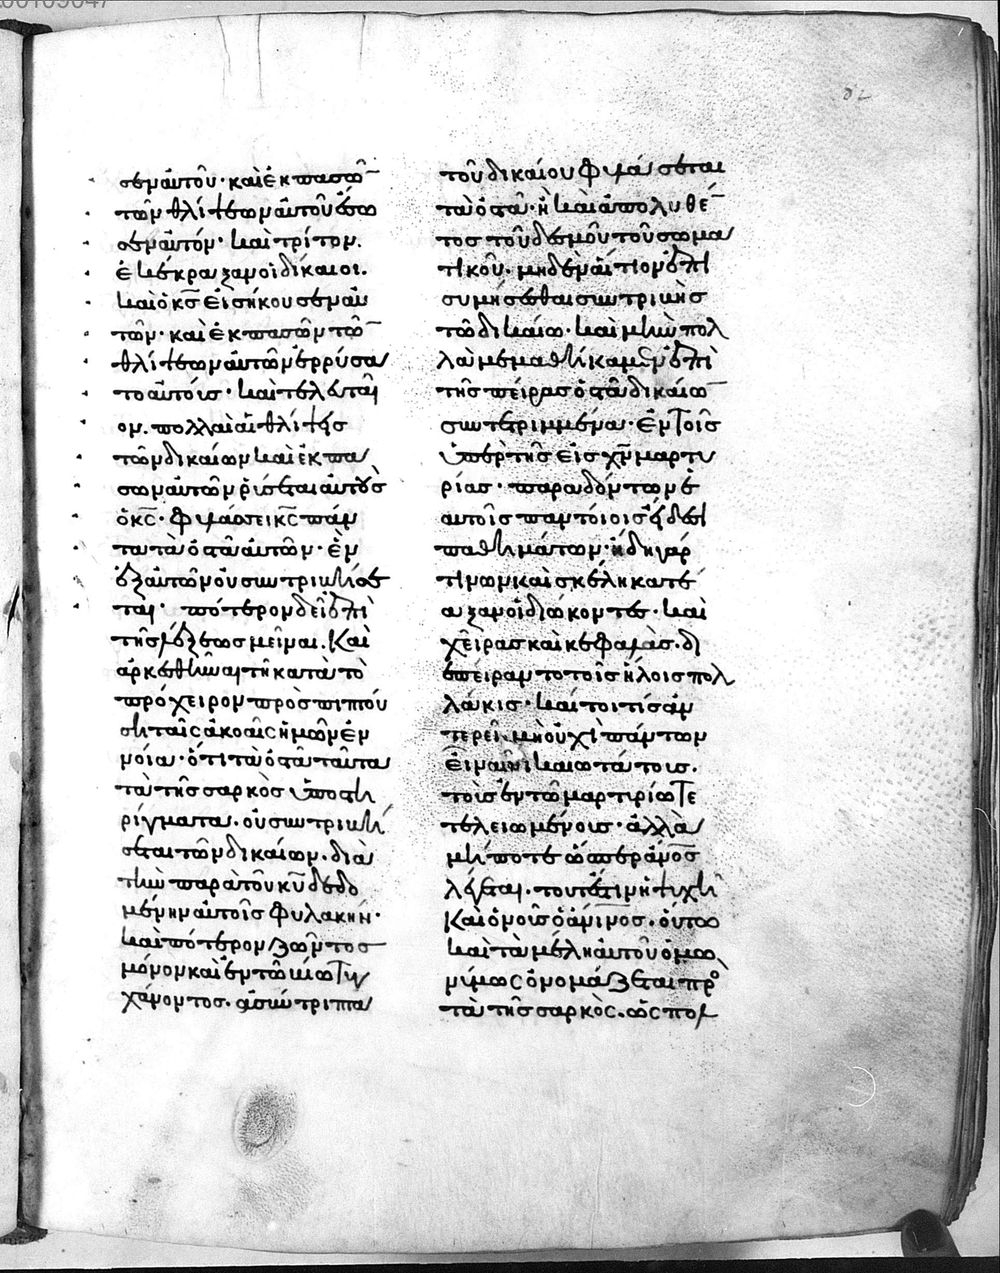 σεν αὐτοῦ· καὶ ἐκ πασῶ̅
τῶν θλίψεων αὐτοῦ ἔσω
σεν αὐτόν· καὶ τρίτον.
ἐκέκραξαν οἱ δίκαιοι.
καὶ ὁ κ̅ς̅ εἰσήκουσεν αὐ
τῶν· καὶ ἐκ πασῶν τῶ̅
θλίψεων αὐτῶν ἐρρύσα
το αὐτούς· καὶ τελευταῖ
ον. πολλαὶ αἱ θλίψεις
τῶν δικαίων καὶ ἐκ πα
σῶν αὐτῶν ῥύσεται αὐτοὺς
ὁ κ̅ς̅· φυλάσσει κ̅ς̅ πάν
τα τὰ ὀστᾶ αὐτῶν· ἓν
ἐξ αὐτῶν οὐ συντριβήσε
ται· πότερον δεῖ ἐπὶ
τῆς λέξεως μεῖναι. Καὶ
ἀρκεσθῆναι τῆ κατὰ τὸ
πρόχειρον προσπιπτού
ση ταῖς ἀκοαῖς ἡμῶν ἐν
νοία· ὅτι τὰ ὀστᾶ ταῦτα
τὰ τῆς σαρκὸς ὑποστη
ρίγματα. οὐ συντριβή
σεται τῶν δικαίων. διὰ
τὴν παρὰ τοῦ κ̅υ̅ δεδο
μένην αὐτοῖς φυλακήν·
καὶ πότερον ζῶντος
μόνον καὶ ἐν τῶ βίω τυγ
χάνοντος. ἀσύντριπτα
τοῦ δικαίου φυλάσσεται
τὰ ὀστᾶ· ἢ καὶ ἀπολυθέ̅
τος τοῦ δεσμοῦ τοῦ σωμα
τικοῦ. μηδὲν αἴτιον ἐπι
συμβήσεσθαι συντριβῆς
τῶ δικαίω· καὶ μὴν πολ
λὰ μεμαθήκαμεν ἐπὶ
τῆς πείρας ὀστᾶ δικαίω̅
συντετριμμένα· ἐν τοῖς
ὑπὲρ τῆς εἰς χ̅ν̅ μαρτυ
ρίας· παραδόντων ἑ
αυτοῖς παντοίοις εἴδεσι
παθημάτων· ἤδη γάρ
τινων καὶ σκέλη κατέ
αξαν οἱ διώκοντες· καὶ
χεῖρας καὶ κεφαλὰς. δι
έπειραν τοτοῖς ἥλοις πολ
λάκις· καίτοι τίς ἀν
τερεῖ. μὴ οὐχὶ πάντων
εἶναι δικαιωτάτοις.
τοῖς ἐν τῶ μαρτυρίω τε
τελειωμένοις· ἀλλὰ
μήποτε ὥσπερ ἄν̅ο̅ς̅
λέγεται. τουτέστιν ἡ ψυχὴ
Καὶ ὁ νοῦς ὁ ἀν̅ι̅νος. οὕτω
καὶ τὰ μέλη αὐτοῦ ὁμω
νύμως ὀνομάζεται πρὸ
τὰ τῆς σαρκὸς. ὡς πολ